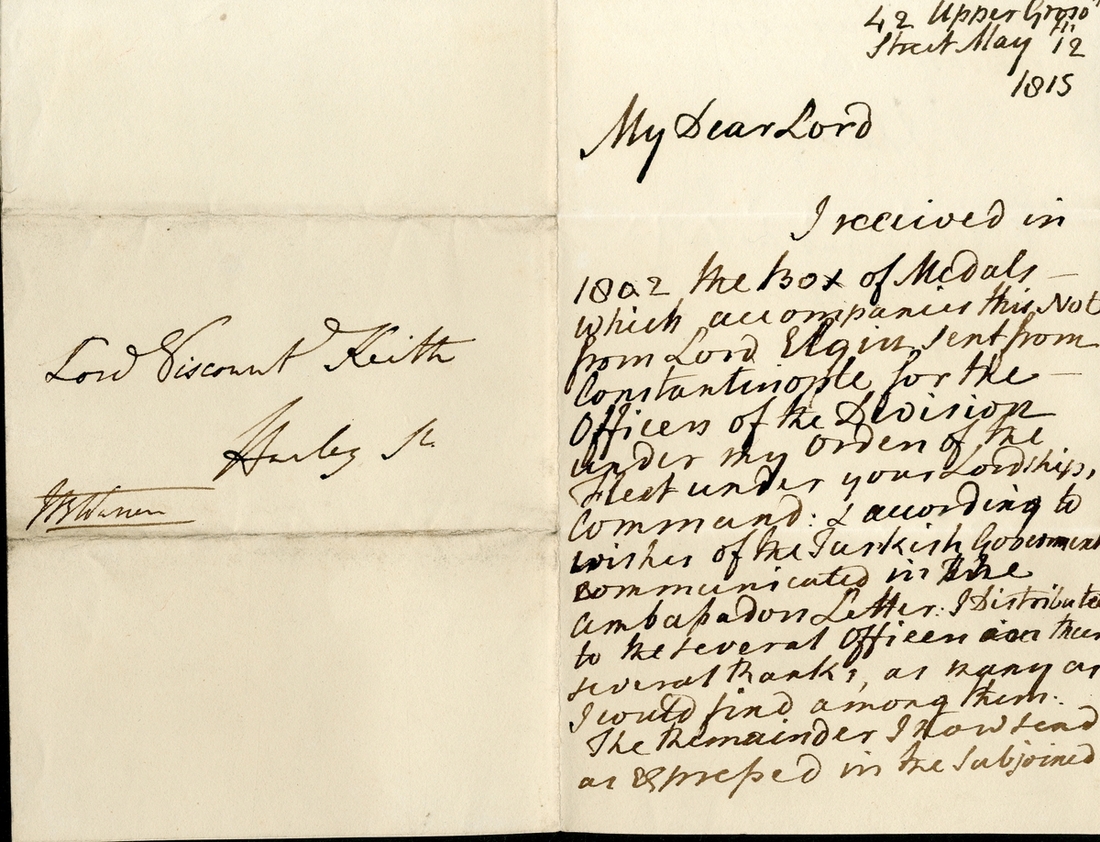 Lord Viscount Keith
Harley St
JBWarren
42 Upper Grosv
Street May 12th
1815
My Dear Lord
I received in
1802 the Box of Medals
which accompanies this Not
from Lord Elgin sent from
Constantinople for the
Officers of the Division
under my Orders of the
Fleet under your Lordships,
Command: & according to
wishes of the Turkish Government
communicated in the
ambassadors Letter: I Distribute
to the several Officers
several Ranks, as many as
I could find among them:
The Remainder I now send
as Expressed in the Subjoined